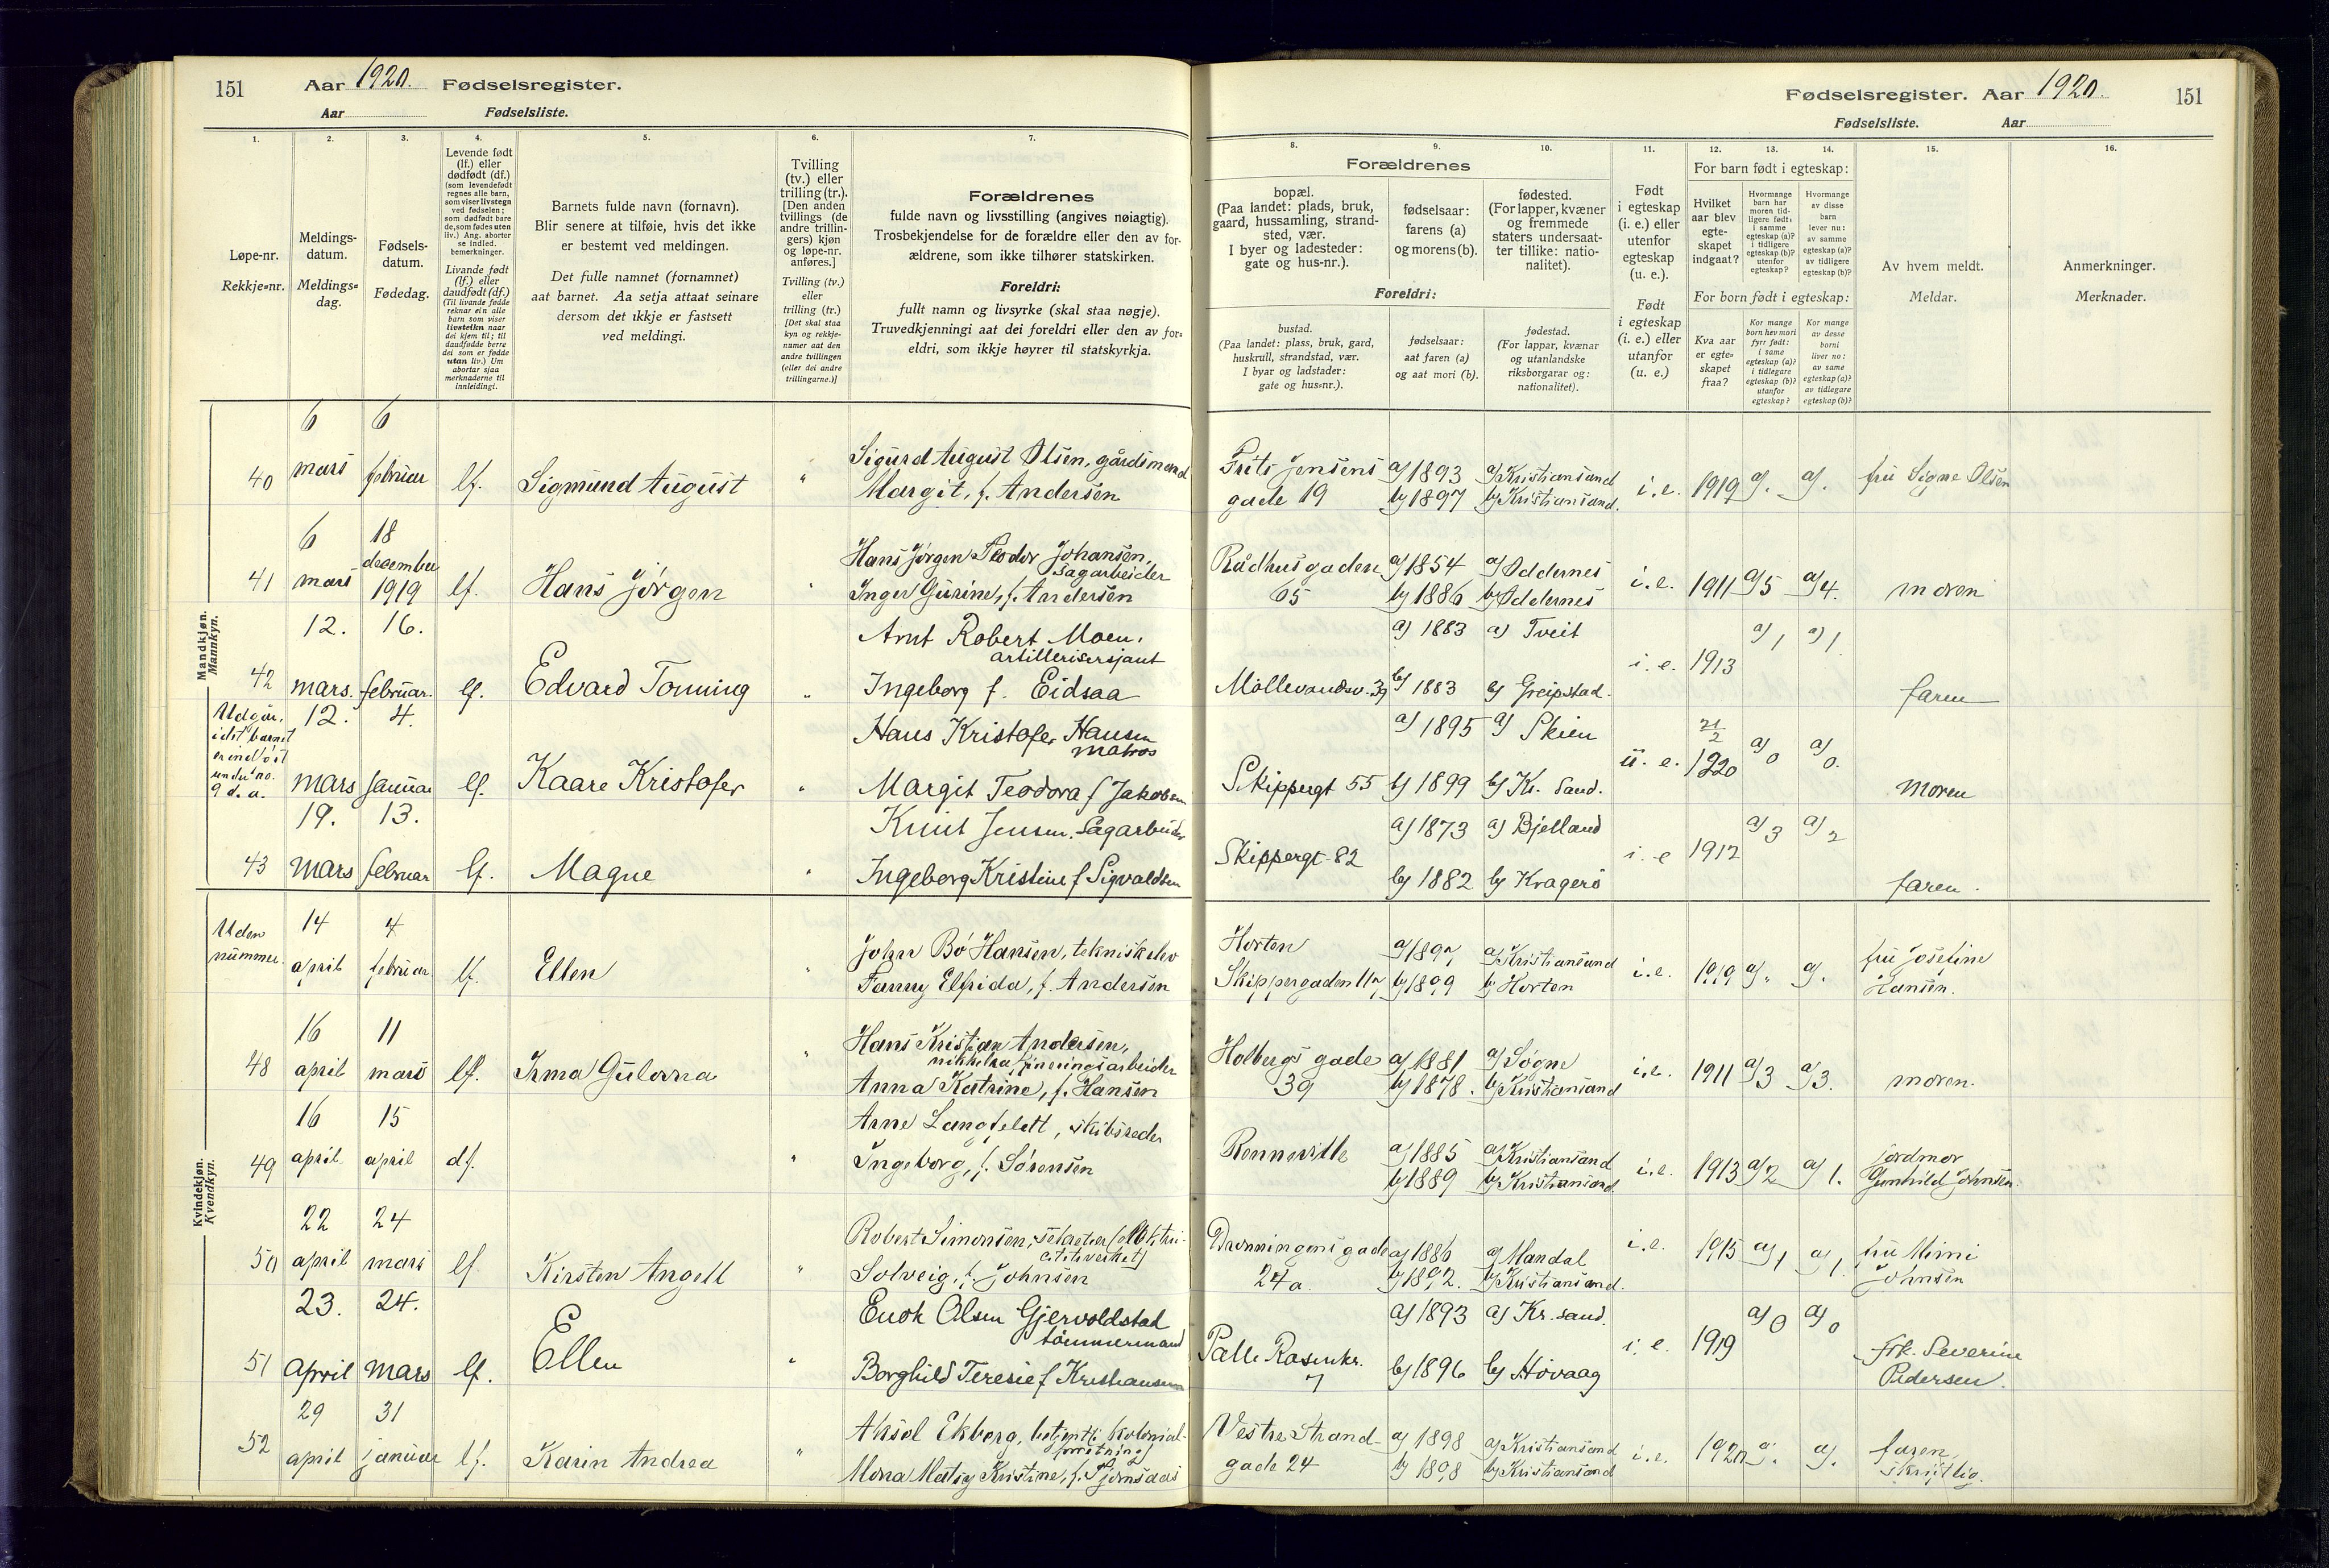 151 Aar 1920. Fødselsregister.
Aar Fødselsliste.
Fødselsregister. Aar 1920. 151
Fødselsliste. Aar
1. 2. 3. 4. 5. 6. 7.
Løpe-nr.
Rekkje-nr.
Meldings-
datum.
Meldings-
dag.
Fødsels-
datum.
Fødedag.
Levende født
(lf.) eller
dødfødt (df.)
(som levendefødt
regnes alle barn,
som viser livstegn
ved fødselen;
som dødfødt bare
de, som fødes uten
liv.) Ang. aborter
se indled.
bemerkninger.
Livande født
(lf.) eller
daudfødt (df.)
(Til livande fødde
reknar ein alle
born som viser
livsteikn naar
dei kjem til; til
daudfødde berre
dei som er fødde
utan liv.) Um
abortar sjaa
merknaderne til
innleidingi.
Barnets fulde navn (fornavn).
Blir senere at tilføie, hvis det ikke
er bestemt ved meldingen.
Det fulle namnet (fornamnet)
aat barnet. Aa setja attaat seinare
dersom det ikkje er fastsett
ved meldingi.
Tvilling
(tv.) eller
trilling (tr.).
[Den anden
tvillings (de
andre trillin-
gers) kjøn
og løpe-nr.
anføres.]
Tvilling (tv.)
eller
trilling (tr.)
[Det skal staa
kyn og rekkje-
numer aat den
andre tvillingen
(eller dei andre
trillingarne.)]
Forældrenes
fulde navn og livsstilling (angives nøiagtig).
Trosbekjendelse for de forældre eller den av for-
ældrene, som ikke tilhører statskirken.
Foreldri:
fullt namn og livsyrke (skal staa nøgje).
Truvedkjenningi aat dei foreldri eller den av for-
eldri, som ikkje høyrer til statskyrkja.
8. 9. 10. 11. 12. 13. 14. 15. 16.
Forældrenes
bopæl.
(Paa landet: plads, bruk,
gaard, hussamling, strand-
sted, vær.
I byer og ladesteder:
gate og hus-nr.).
fødselsaar:
farens (a)
og morens (b).
fødested.
(For lapper, kvæner
og fremmede
staters undersaat-
ter tillike: natio-
nalitet).
Foreldri:
bustad.
(Paa landet: plass, bruk, gard,
huskrull, strandstad, vær.
I byar og ladstader:
gate og hus-nr.).
fødselsaar:
aat faren (a)
og aat mori (b).
fødestad.
(For lappar, kvænar
og utanlandske
riksborgarar og:
nationalitet).
Født
i egteskap
(i. e.) eller
utenfor
egteskap
(u. e.).
Født
i egteskap
(i. e.) eller
utanfor
(u. e.)
For barn født i egteskap:
Hvilket
aar blev
egte-
skapet
indgaat?
Hvormange
barn har
moren tid-
ligere født:
i samme
egteskap (a)?
i tidligere
egteskap (b)?
utenfor
egteskap?
Hvormange
av disse
barn
lever nu:
av samme
egteskap (a)?
av tidligere
egteskap (b)?
For born født i egteskap:
Kva aar
er egte-
skapet
fraa?
Kor mange
born hev mori
fyrr født:
i same
egteskap (a)?
i tidlegare
egteskap (b)?
utanfor
egteskap?
Kor mange
av desse
borni
liver no:
av same
egteskap (a)?
av tidlegare
egteskap (b)?
Av hvem meldt.
Meldar.
Anmerkninger.
Merknader.
Mandkjøn.
Mannkyn.
40 6 mars 6 februar lf. Sigmund August " Sigurd August Olsen, gårdsmand
Margit, f. Andersen
Frits Jensens gade 19 a) 1893 b) 1897 a) Kristiansand b) Kristiansand. i.e. 1919 a). a). fru Signe Olsen
41 6 mars 18 december 1919 lf. Hans Jørgen " Hans Jørgen Teodor Johansen, sagarbeider
Inger Gurine, f. Andersen
Rådhusgaden 65 a) 1854 b) 1886 a) Oddernes b) Oddernes i.e. 1911 a) 5 a) 4. moren
42 12. mars. 16. februar. lf. Edvard Tonning " Arnt Robert Moen, artillerisersjant
Ingeborg f. Eidsaa
Møllevandsv. 39 a) 1883 b) 1883 a) Tveit b) Greipstad. i. e. 1913 a) 1 a) 1 faren
Udgår, idet barnet er indført under no. 9 d. a. 12. mars 4. januar lf. Kaare Kristofer " Hans Kristofer Hansen matros
Margit Teodora f Jakobsen
Skippergt 55 a) 1895 b) 1899 a) Skien b) Kr. Sand. u. e. 21/2 1920 a) 0 a) 0. moren
43 19. mars 13. februar lf. Magne " Knut Jensen, Sagarbeider
Ingeborg Kristine f Sigvaldsen
Skippergt. 82 a) 1873 b) 1882 a) Bjelland b) Kragerø i. e 1912 a) 3 a) 2 faren.
Kvindekjøn.
Kvendkyn.
Uden nummer. 14 april 4 februar lf. Ellen " John Bø Hansen, teknisk elev
Fanny Elfrida, f. Andersen
Horten Skippergaden 11a b) 1899 a) Kristiansund b) Horten i.e. 1919 a). a). fru Josefine Hansen.
48 16 april 11 mars lf. Irma Gulovna " Hans Kristian Andersen, nikkelraffineringsarbeider
Anna Katrine, f. Hansen
Holbergs gade 39 a) 1881 b) 1878. a) Søgne b) Kristiansand i.e. 1911 a) 3 a) 3. moren.
49 16 april 15 april df. " Arne Langfeldt, skibsreder
Ingeborg, f. Sørensen
a) 1885 b) 1889 a) Kristiansand b) Kristiansand. i.e. 1913 a) 2 a) 1. jordmor Gunhild Johnsen.
50 22 april 24 mars lf Kirsten Angell " Robert Simonsen,
Solveig, f. Johnsen
Dronningens gade 24a. a) 1886 b) 1892. a) Mandal b) Kristiansand. i.e. 1915 a) 1 a) 1 fru Mimi Johnsen
51 23. april 24. mars lf. Ellen " Enok Olsen Gjervoldstad tømmermand
Borghild Teresie f Kristiansen
Palle Rosenkr. 7 a) 1893 b) 1896 a) Kr. sand. b) Høvaag i. e. 1919 a) 0 a) 0 frk. Severine Pedersen.
52 29 april 31 januar lf. Karin Andrea " Aksel Ekberg, betjent i kolonialforretning
Mona Kristine, f.
Vestre Strandgade 24 a) 1898 b) 1898 a) Kristiansand b) Kristiansand i.e. 1920 a). a). faren skriftlig.